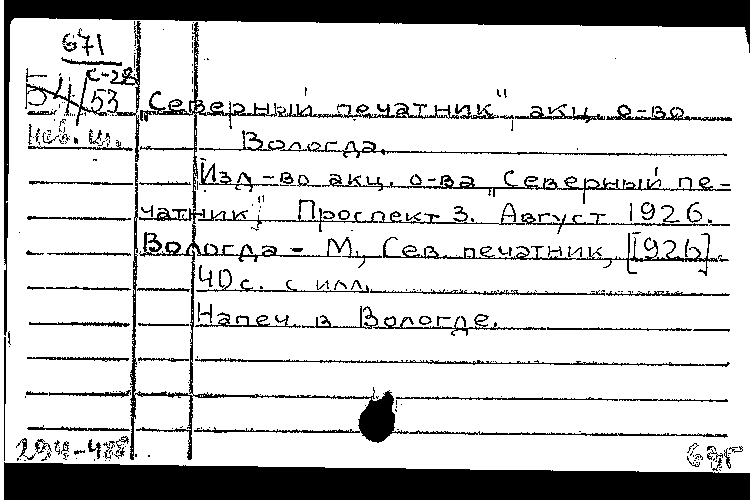 671
С-28
54/53
„Северный печатник", акц. о-во
Вологда.
Изд-во акц. о-ва „Северный пе-
чатник". Проспект 3. Август 1926.
Вологда - М., Сев. печатник, [1926].
40 с. с илл.
Напеч. в Вологде.